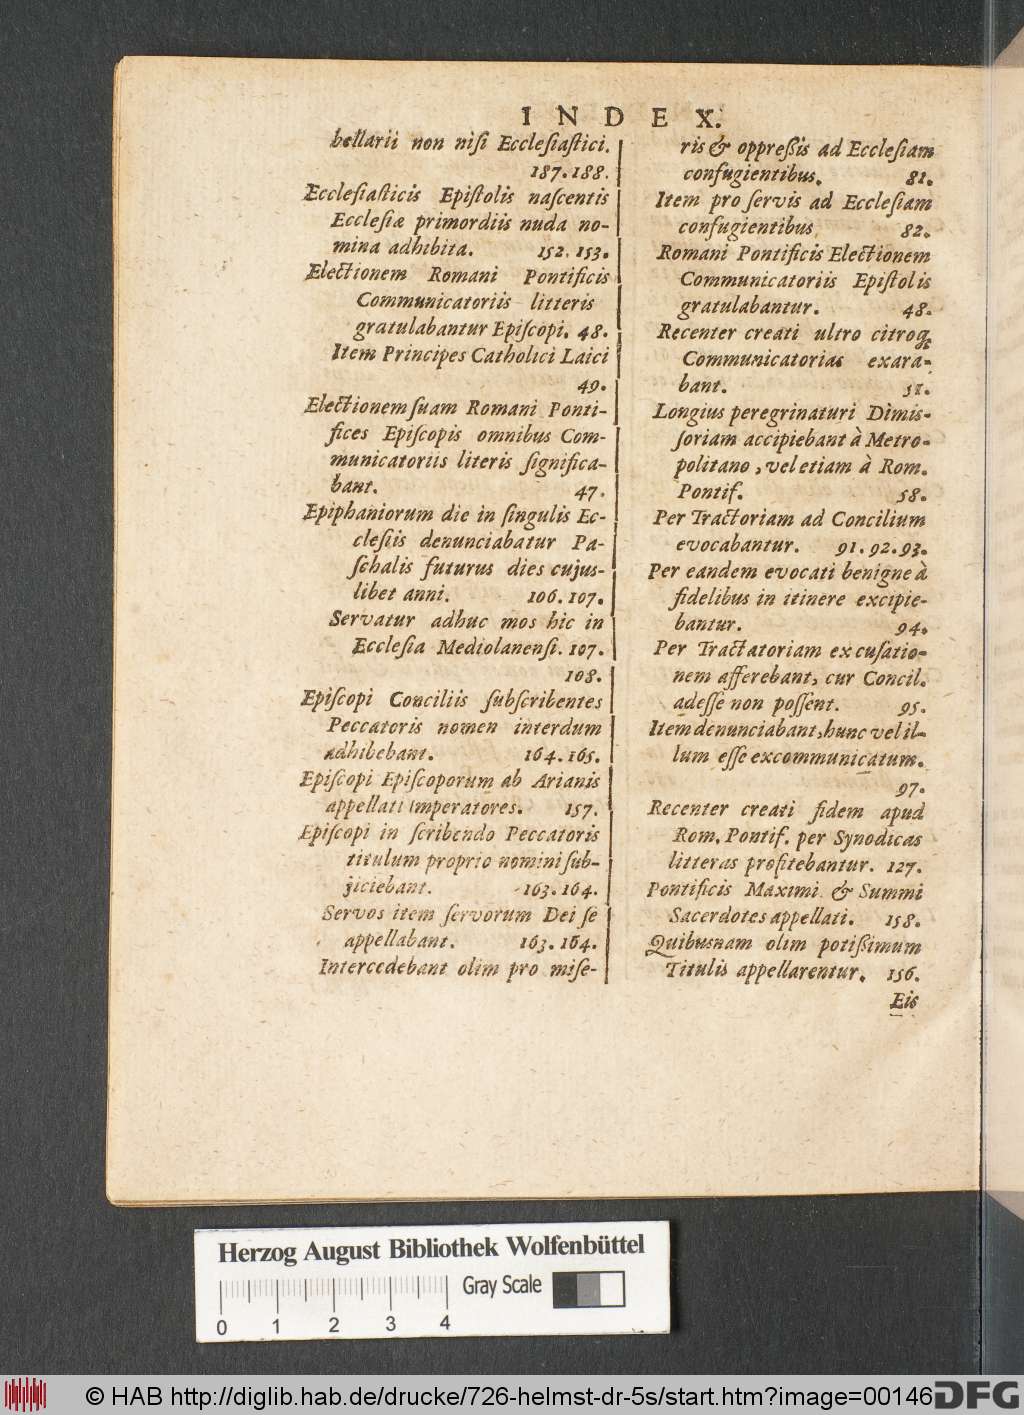 INDEX.
bellarii non niſi Eccleſiaſtici.
187. 188.
Eccleſiaſticis Epiſtolis naſcentis
Eccleſiæ primordiis nuda no-
mina adhibita. 152. 153.
Electionem Romani Pontificis
Communicatoriis litteris
gratulabantur Epiſcopi. 48.
Item Principes Catholici Laici
49.
Electionem ſuam Romani Ponti-
fices Epiſcopis omnibus Com-
municatoriis literis ſignifica-
bant. 47.
Epiphaniorum die in ſingulis Ec-
cleſiis denunciabatur Pa-
ſchalis futurus dies cujus-
libet anni. 106. 107.
Servatur adhuc mos hic in
Eccleſia Mediolanenſi. 107.
108.
Epiſcopi Conciliis ſubſcribentes
Peccatoris nomen interdum
adhibebant. 164. 165.
Epiſcopi Epiſcoporum ab Arianis
appellati Imperatores. 157.
Epiſcopi in ſcribendo Peccatoris
titulum proprio nomini ſub-
jiciebant. 163. 164.
Servos item ſervorum Dei ſe
appellabant. 163. 164.
Intercedebant olim pro miſe-
ris & oppreßis ad Eccleſiam
confugientibus. 81.
Item pro ſervis ad Eccleſiam
confugientibus 82.
Romani Pontificis Electionem
Communicatoriis Epiſtolis
gratulabantur. 48.
Recenter creati ultro citroq;
Communicatorias exara-
bant. 51.
Longius peregrinaturi Dimiſ-
ſoriam accipiebant à Metro-
politano, vel etiam à Rom.
Pontif. 58.
Per Tractoriam ad Concilium
evocabantur. 91. 92. 93.
Per eandem evocati benigne à
fidelibus in itinere excipie-
bantur. 94.
Per Tractatoriam excuſatio-
nem afferebant, cur Concil.
adeſſe non poſſent. 95.
Item denunciabant, hunc vel il-
lum eſſe excommunicatum.
97.
Recenter creati fidem apud
Rom. Pontif. per Synodicas
litteras profitebantur. 127.
Pontificis Maximi & Summi
Sacerdotes appellati. 158.
Quibusnam olim potißimum
Titulis appellarentur. 156.
Eis
Herzog August Bibliothek Wolfenbüttel
Gray Scale
0 1 2 3 4
© HAB http://diglib.hab.de/drucke/726-helmst-dr-5s/start.htm?image=00146
DFG